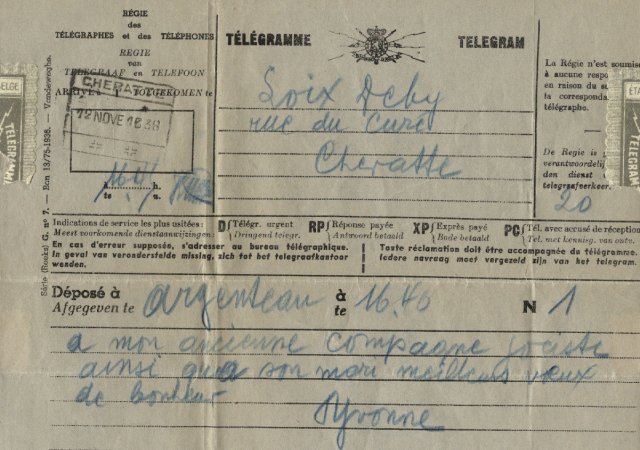 RÉGIE
des
TÉLÉGRAPHES et des TÉLÉPHONES
REGIE
van
TELEGRAAF en TELEFOON
ARRIVÉ A TOEGEKOMEN te
CHERATTE
12 NOVE 16
16.41
à h.
te u.
TÉLÉGRAMME TELEGRAM
Loix Deby
rue du Curé
Cheratte
La Régie n'est soumise
à aucune resp
en raison du s
la corresponda
télégraphe.
De Regie is
verantwoordelij
den dienst
telegraafverkeer.
20
BELGE
TÉLÉGRAM
ÉTA
TÉLÉ
Série (Reeks) G. nº 7. — Bon 13/75-1938. — Vandeweghe.
Indications de service les plus usitées:
Meest voorkomende dienstaanwijzingen:
D Télégr. urgent
Dringend telegr.
RP Réponse payée
Antwoord betaald
XP Exprès payé
Bode betaald
PC Tél. avec accusé de réception
Tel. met kennisg. van ontv.
En cas d'erreur supposée, s'adresser au bureau télégraphique.
In geval van veronderstelde missing, zich tot het telegraafkantoor
wenden.
Toute réclamation doit être accompagnée du télégramme.
Iedere navraag moet vergezeld zijn van het telegram.
Déposé à
Afgegeven te
argenteau à
te
16.40 N 1
a mon ancienne compagne jociste
ainsi qua son mari meilleurs vœux
de bonheur
Yvonne